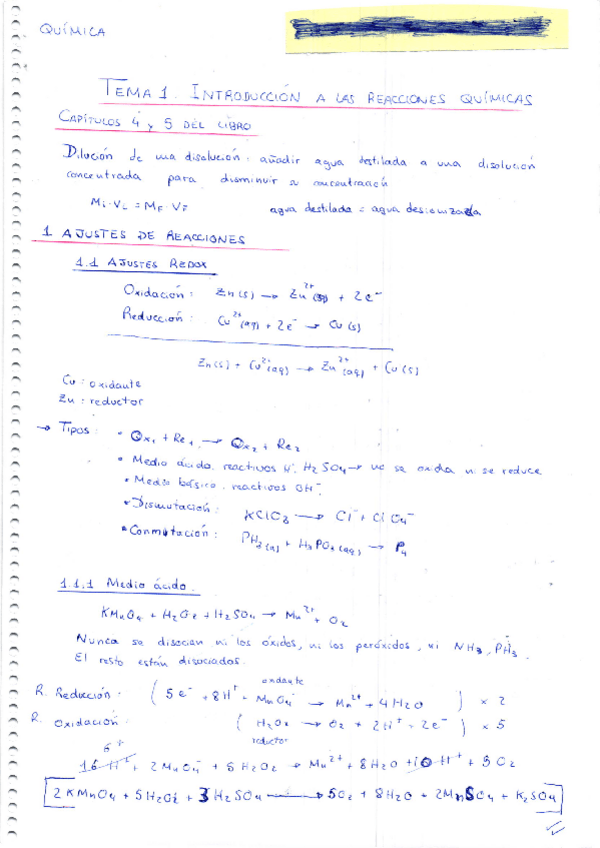 QUÍMICA
TEMA 1. INTRODUCCIÓN A LAS REACCIONES QUÍMICAS
CAPÍTULOS 4 y 5 DEL LIBRO
Dilución de una disolución: añadir agua destilada a una disolución
concentrada para disminuir su concentración
Mi·Vi = MF·VF agua destilada = agua desionizada
1 AJUSTES DE REACCIONES
1.1 AJUSTES REDOX
Oxidación: Zn(s) → Zn²⁺ + 2e⁻
Reducción: Cu²⁺(aq) + 2e⁻ → Cu(s)
Zn(s) + Cu²⁺(aq) → Zn²⁺(aq) + Cu(s)
Cu: oxidante
Zn: reductor
→ Tipos: • Ox₁ + Re₁ → Ox₂ + Re₂
• Medio ácido. reactivos H⁺. H₂SO₄ → no se oxida ni se reduce
• Medio básico. reactivos OH⁻.
• Dismutación: KClO₃ → Cl⁻ + ClO₄⁻
• Conmutación: PH₃(g) + H₃PO₂(aq) → P₄
1.1.1 Medio ácido.
KMnO₄ + H₂O₂ + H₂SO₄ → Mn²⁺ + O₂
Nunca se disocian ni los óxidos, ni los peróxidos, ni NH₃, PH₃.
El resto están disociados.
oxidante
R. Reducción: (5e⁻ + 8H⁺ + MnO₄⁻ → Mn²⁺ + 4H₂O) x 2
R. Oxidación: (H₂O₂ → O₂ + 2H⁺ + 2e⁻) x 5
reductor
6⁺
16 H⁺ + 2MnO₄⁻ + 5H₂O₂ → Mn²⁺ + 8H₂O + 10H⁺ + 5O₂
2KMnO₄ + 5H₂O₂ + 3H₂SO₄ → 5O₂ + 8H₂O + 2MnSO₄ + K₂SO₄